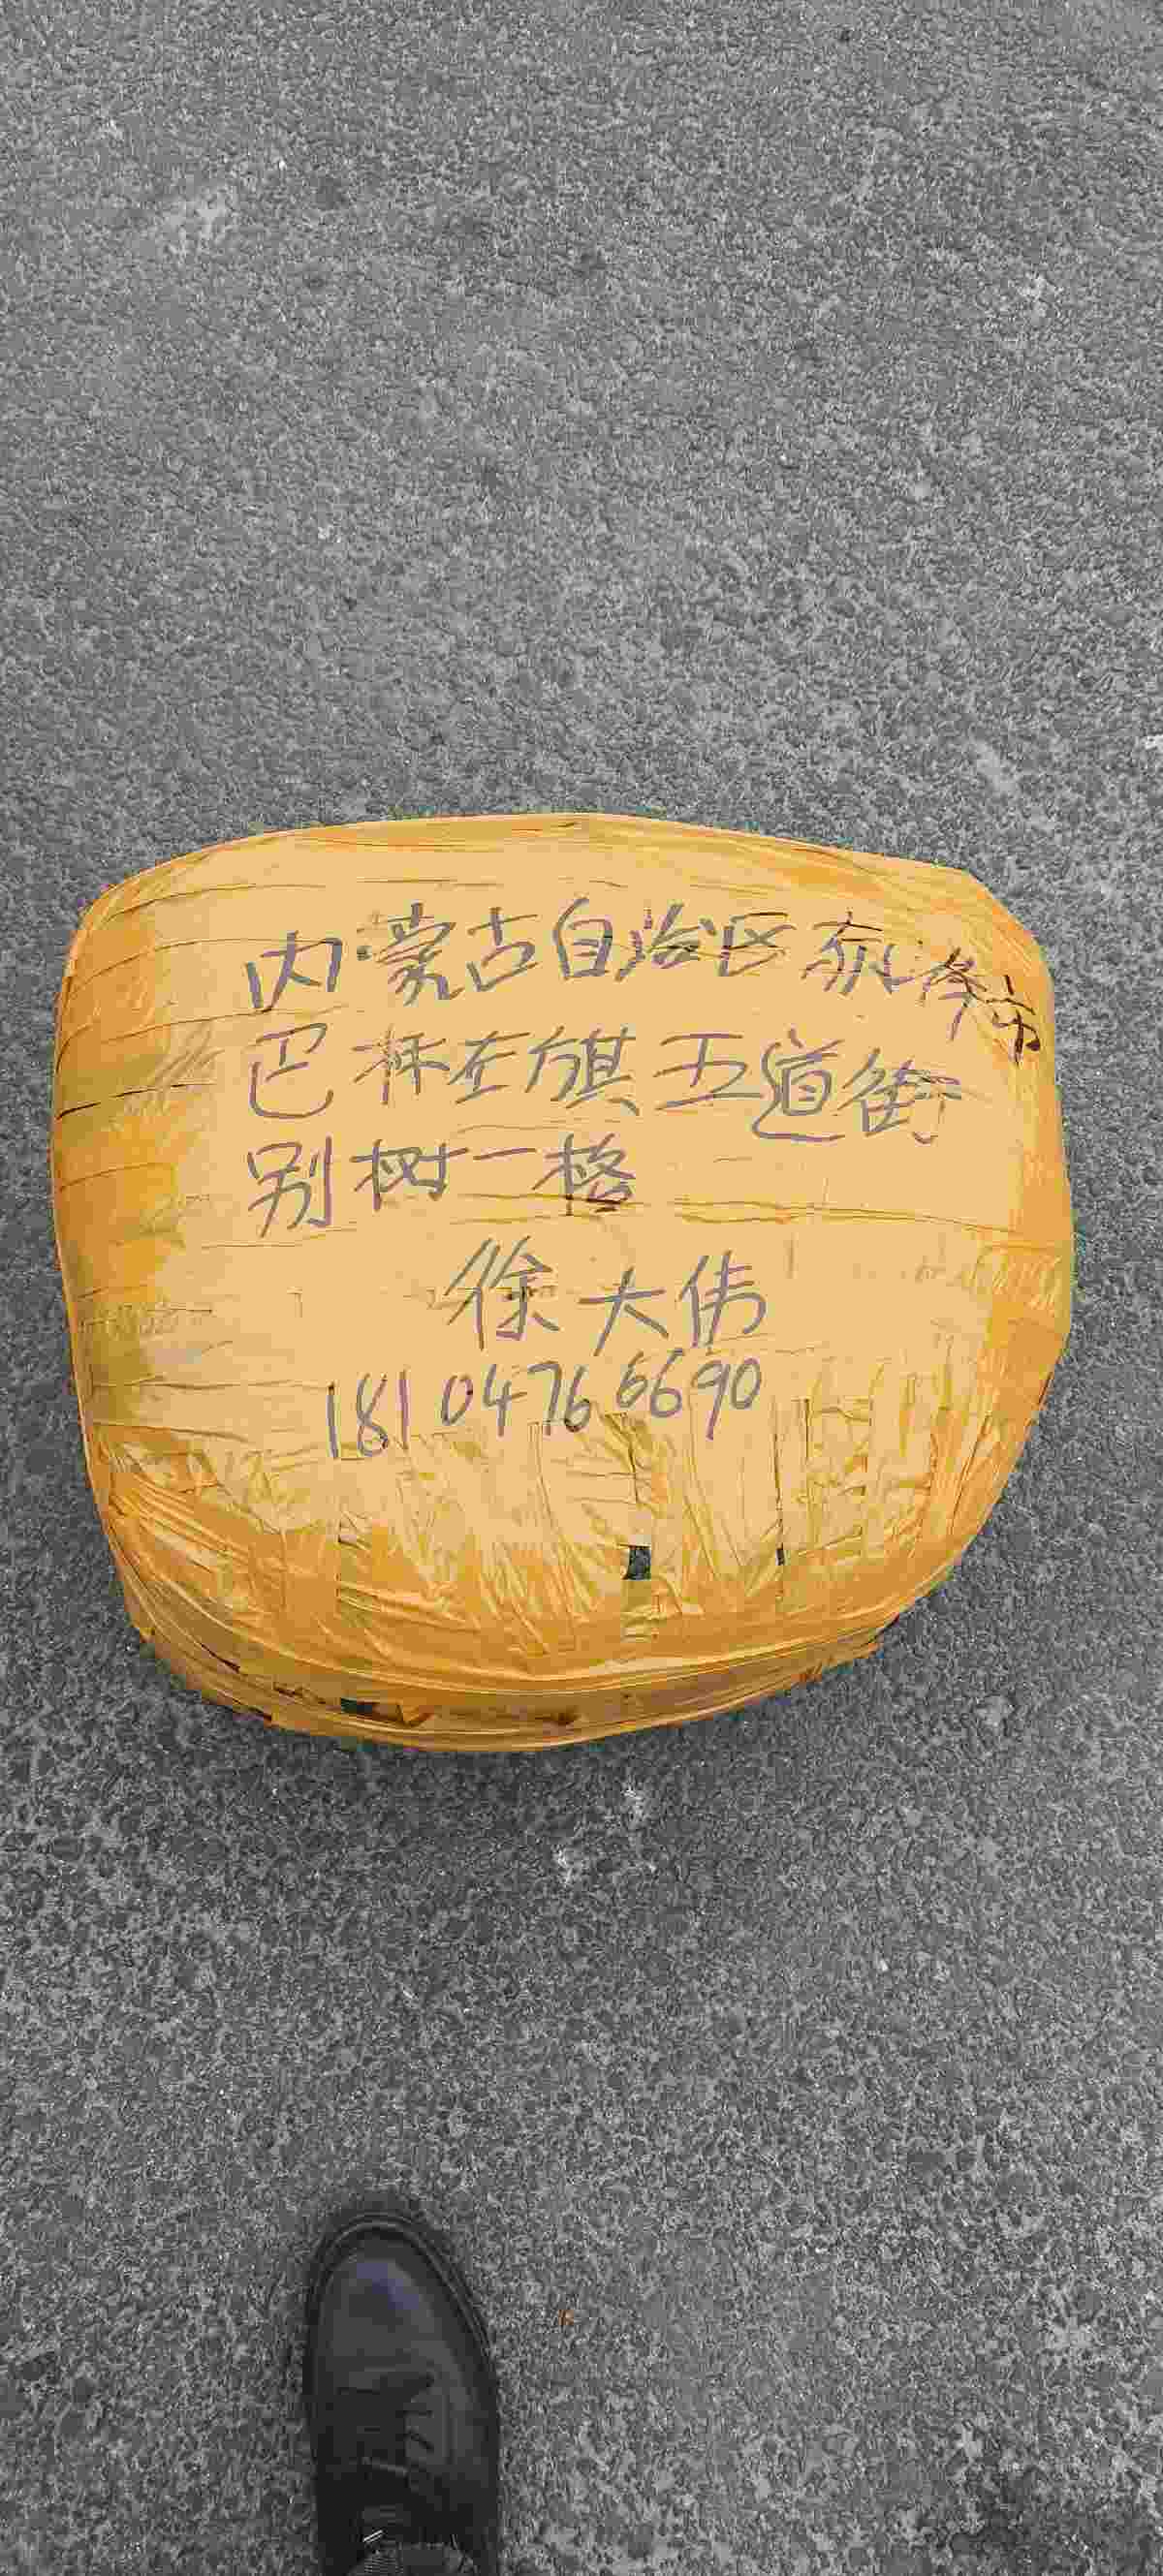 内蒙古自治区赤峰市
巴林左旗五道街
别树一格
徐大伟
18104766690